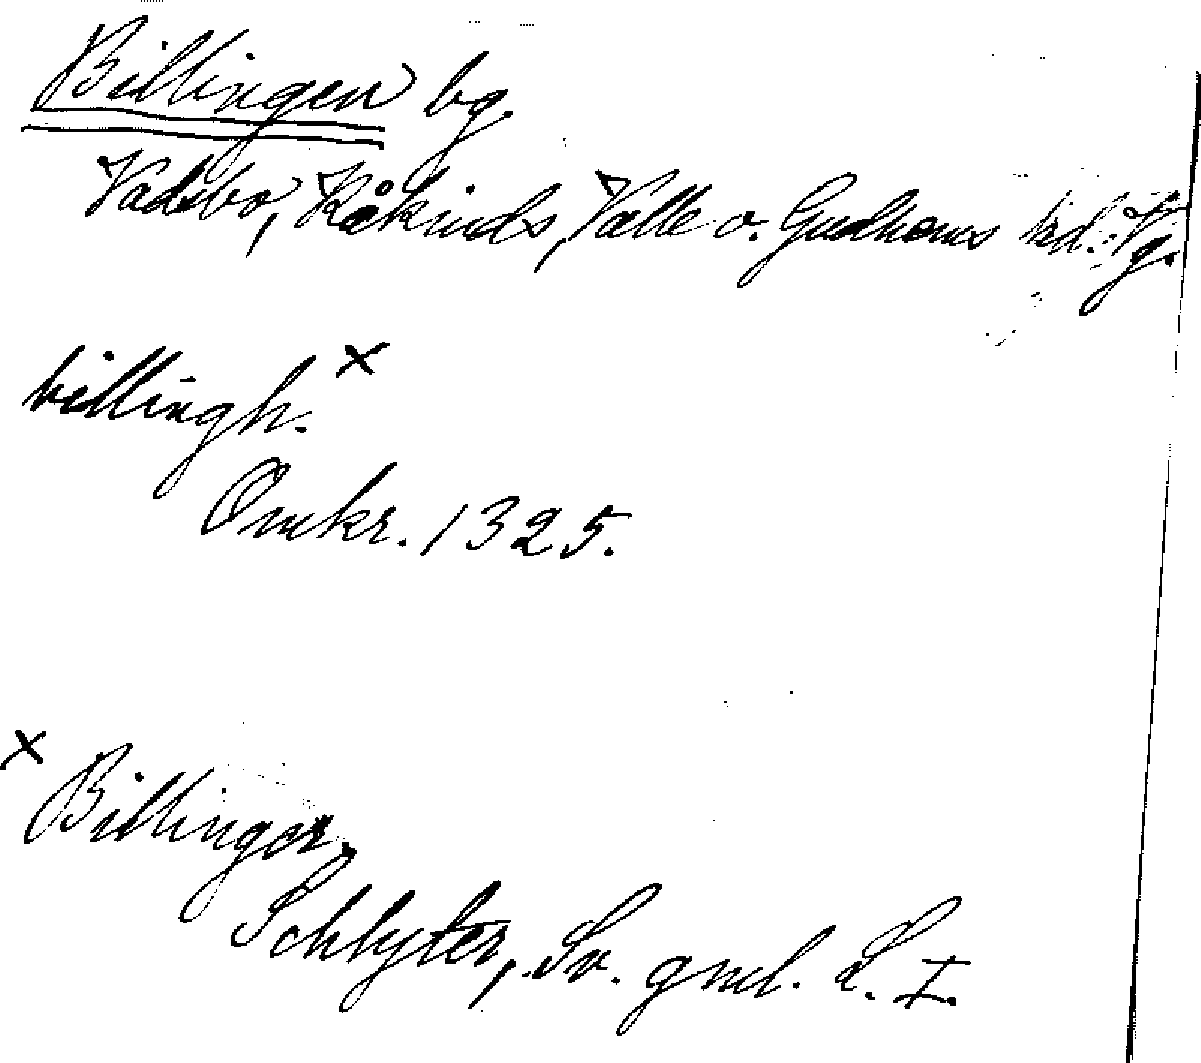 Billingen bg.
Vadsbo, Kåkinds, Valle o. Gudhems hd. Vg.
billingh. ×
Omkr. 1325.
× Billinger,
Schlyter, Sv. gml. L. I.